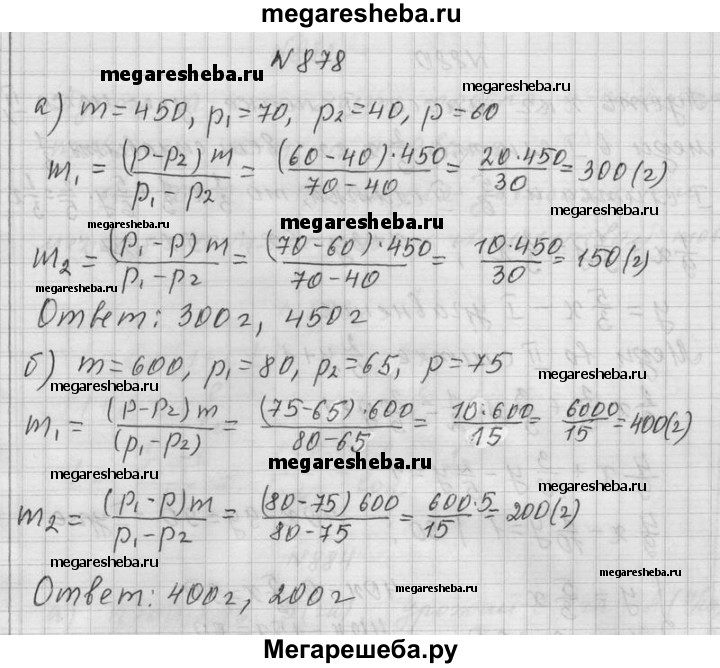 megaresheba.ru
N878
megaresheba.ru megaresheba.ru
а) m=450, p₁=70, p₂=40, p=60
m₁ = (p-p₂)m / p₁-p₂ = (60-40)·450 / 70-40 = 20·450 / 30 = 300(г)
megaresheba.ru megaresheba.ru megaresheba.ru
m₂ = (p₁-p)m / p₁-p₂ = (70-60)·450 / 70-40 = 10·450 / 30 = 150(г)
megaresheba.ru
Ответ: 300г, 450г
б) m=600, p₁=80, p₂=65, p=75
megaresheba.ru megaresheba.ru
m₁ = (p-p₂)m / (p₁-p₂) = (75-65)·600 / 80-65 = 10·600 / 15 = 6000 / 15 = 400(г)
megaresheba.ru megaresheba.ru megaresheba.ru
m₂ = (p₁-p)m / p₁-p₂ = (80-75)600 / 80-75 = 600·5 / 15 = 200(г)
megaresheba.ru megaresheba.ru
Ответ: 400г, 200г
megaresheba.ru
Мегарешеба.ру